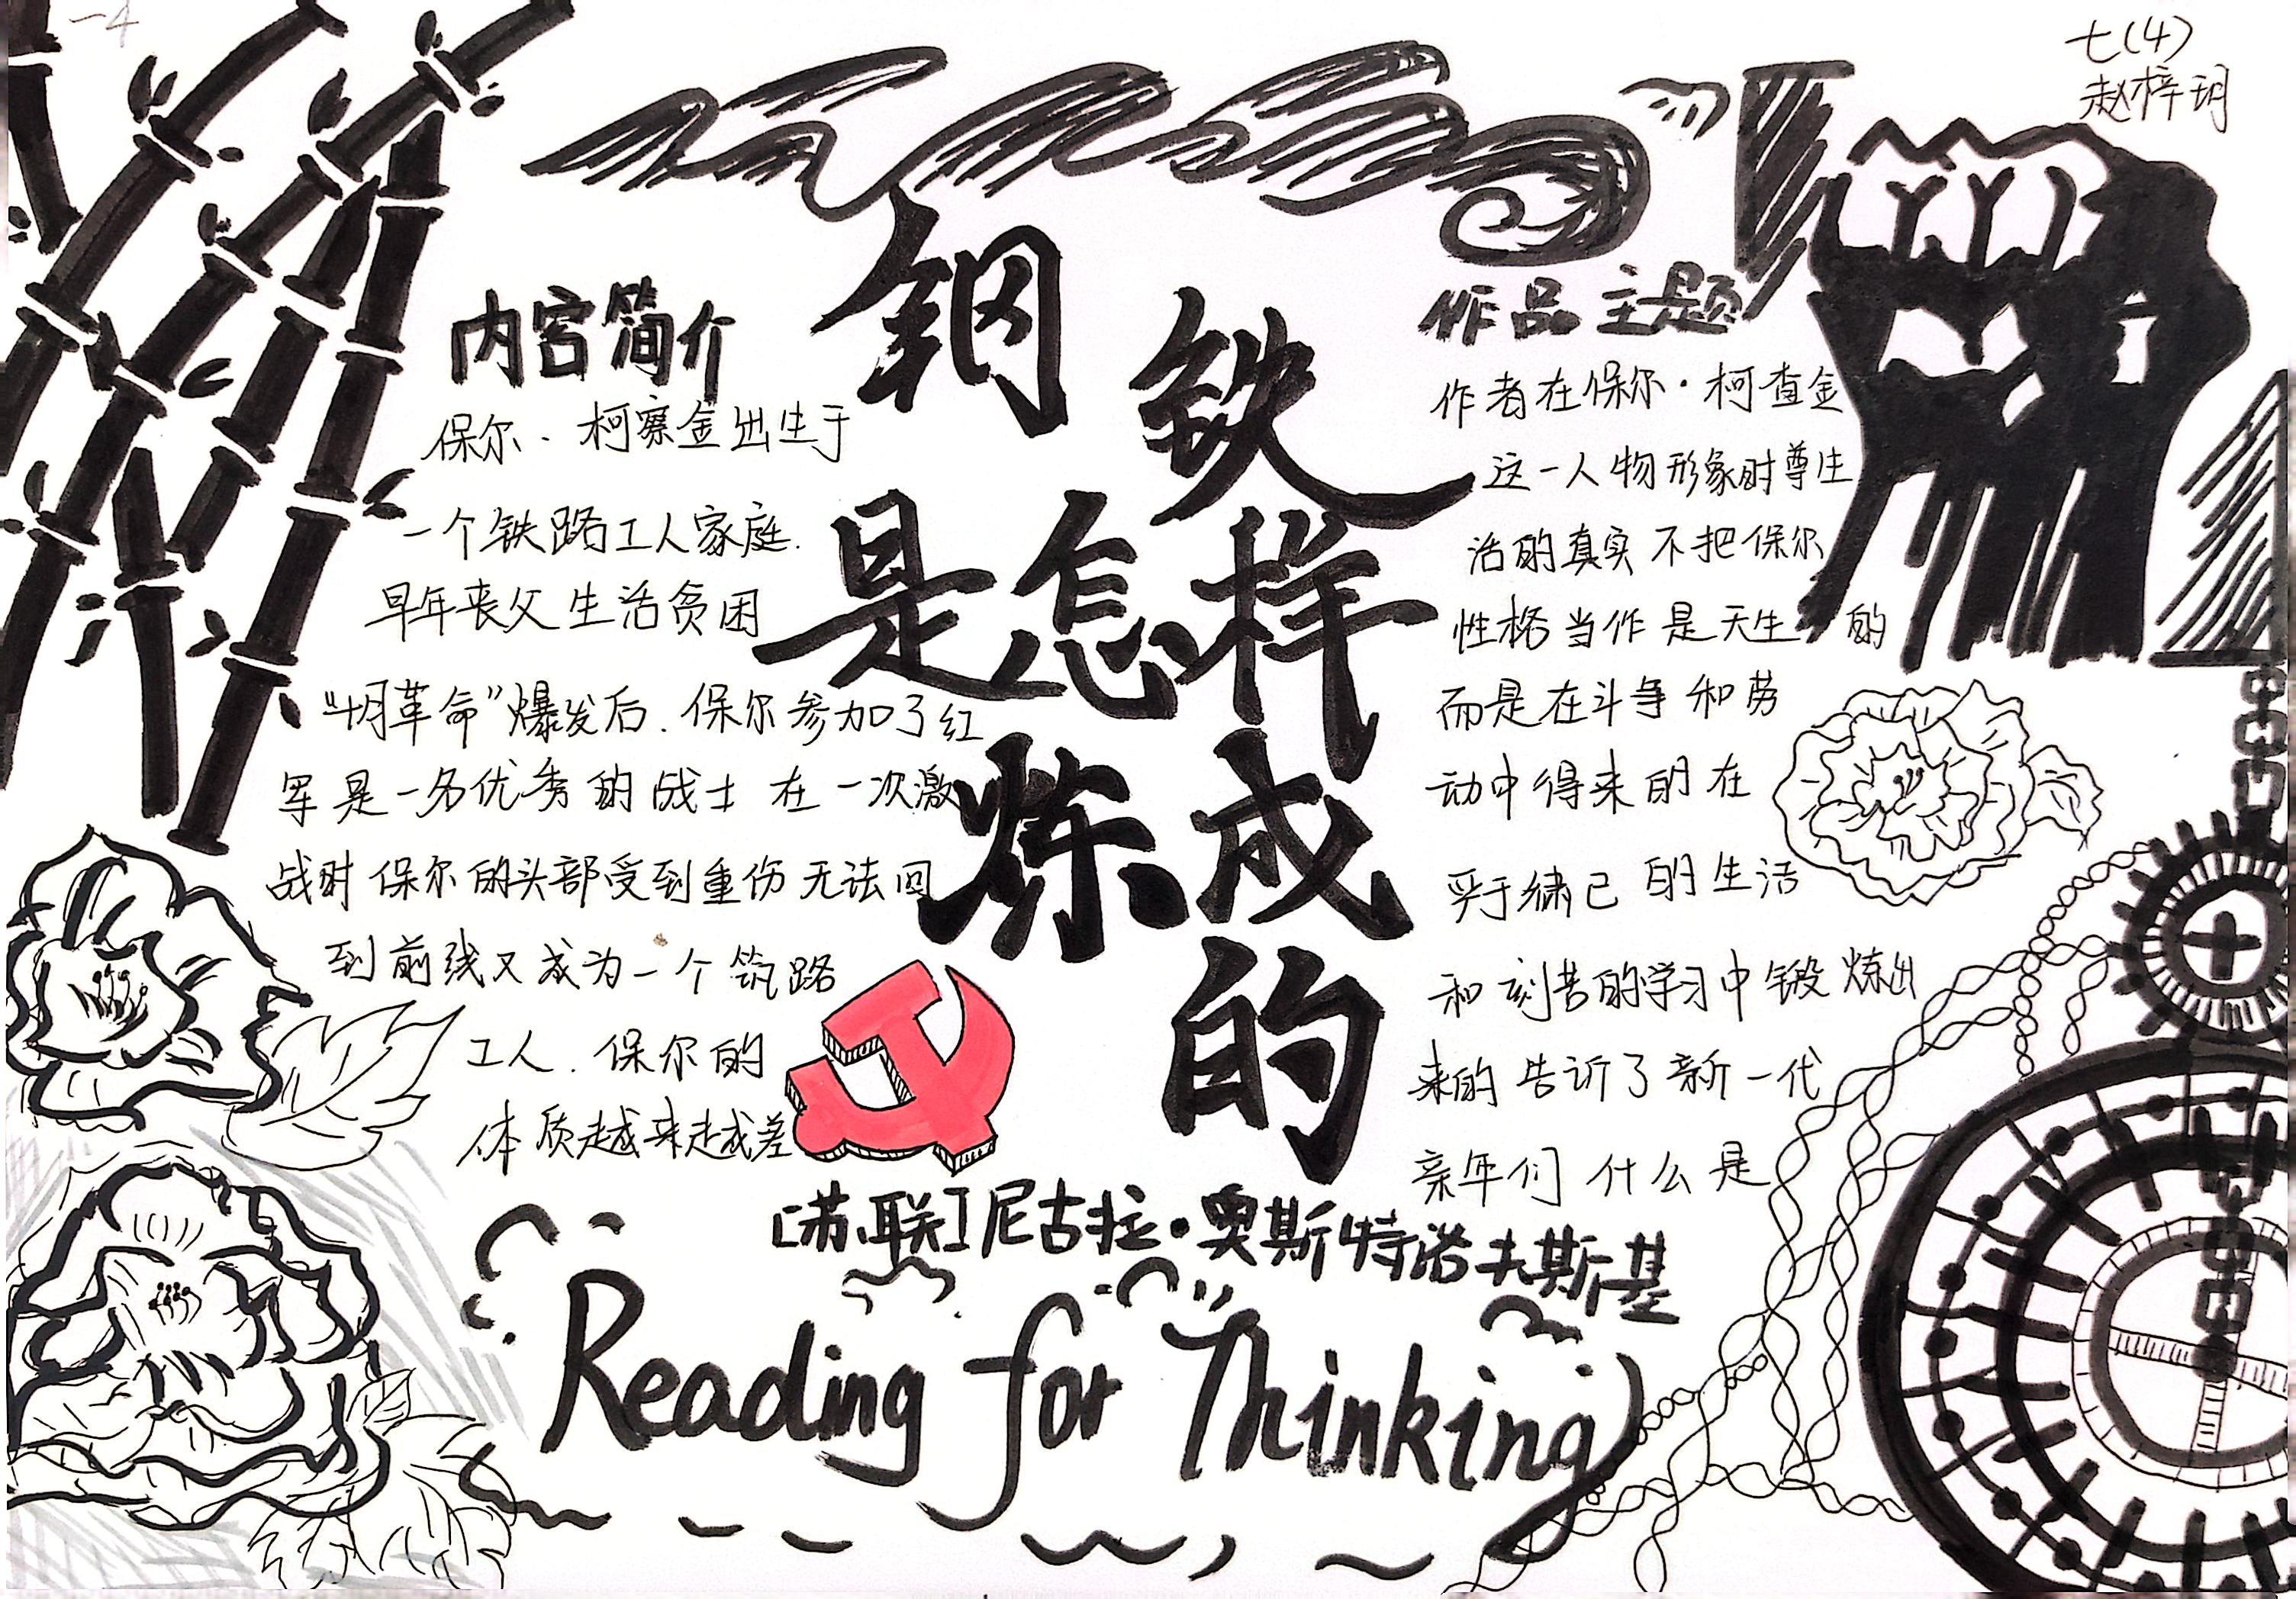 一4
七(4)
赵梓玥
钢铁
是怎样
炼成
的
内容简介
保尔·柯察金出生于
一个铁路工人家庭.
早年丧父生活贫困
“十月革命”爆发后.保尔参加了红
军是一名优秀的战士 在一次激
战时保尔的头部受到重伤无法回
到前线又成为一个筑路
工人.保尔的
体质越来越差
作品主题
作者在保尔·柯查金
这一人物形象时尊生
活的真实不把保尔
性格当作是天生的
而是在斗争和劳
动中得来的在
己的生活
和刻苦的学习中锻炼出
来的告诉了新一代
亲年们什么是
[苏联]尼古拉·奥斯特洛夫斯基
Reading for Thinking